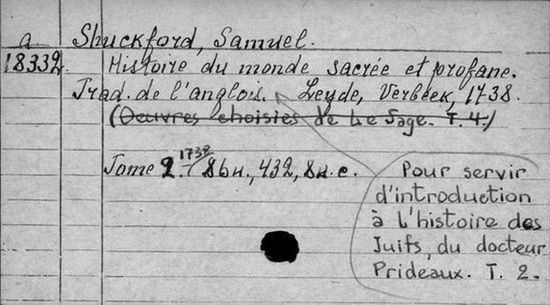 a Shuckford, Samuel.
18332 Histoire du monde sacrée et profane.
Trad. de l'anglois. Leyde, Verbeek, 1738.
(Oeuvres choisies de Le Sage. T. 4.)
Tome 2. 1738
Pour servir
d'introduction
à l'histoire des
Juifs, du docteur
Prideaux. T. 2.